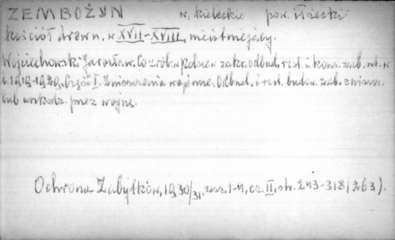 ZEMBOŻYN w. kieleckie pow. iłżecki
kościół drewn. w XVII-XVIII, nieistniejący.
Wojciechowski Jarosław. Co zrob. w Polsce w zakr. odbud. rest. i kons. zab. szt. w
l. 1919-1929. Część I. Zniszczenia wojenne. Odbud. i rest. budow. zab. zniszcz.
lub uszkodz. przez wojnę.
Ochrona Zabytków, 1930/31. zesz. 1-4, cz. II, str. 243-318 (263).